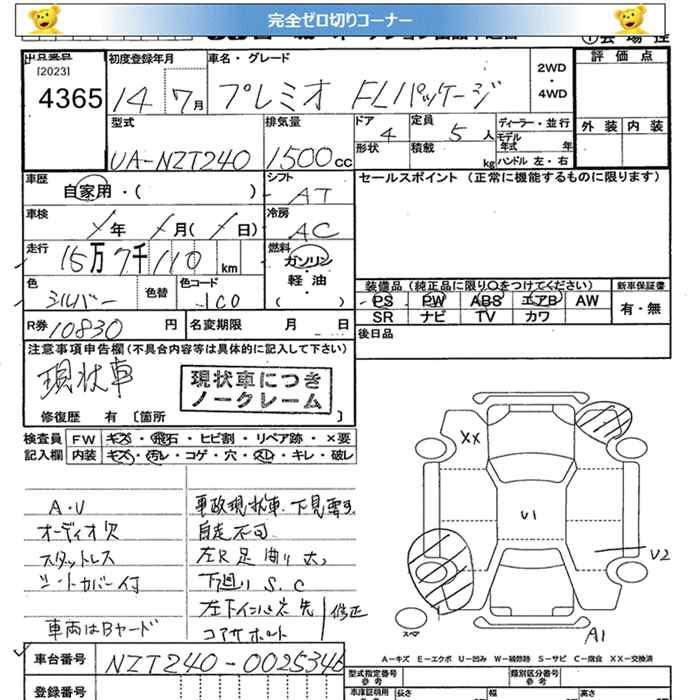 完全ゼロ切りコーナー
[2023]
4365
初度登録年月
14 7月
車名・グレード
プレミオ FLパッケージ
2WD
・
4WD
評価点
外装 内装
型式
UA-NZT240
排気量
1500cc
ドア 4
形状
定員 5人
積載 kg
ディーラー・並行
モデル年式 年
ハンドル 左・右
車歴
自家用・( )
シフト
AT
セールスポイント (正常に機能するものに限ります)
車検
年 月( 日)
冷房
AC
走行
15万7千110km
燃料
ガソリン・
軽油・
( )
色
シルバー
色替
色コード
1C0
装備品 (純正品に限り○をつけてください)
PS PW ABS エアB AW
SR ナビ TV カワ
新車保証書
有・無
R券 10830円
名変期限 月 日
後日品
注意事項申告欄(不具合内容等は具体的に記入して下さい)
現状車
現状車につき
ノークレーム
修復歴 有 〔箇所 〕
検査員
記入欄
FW キズ・飛石・ヒビ割・リペア跡・×要
内装 キズ・汚レ・コゲ・穴・スレ・キレ・破レ
A・V
オーディオ欠
スタットレス
シートカバー付
車両はBヤード
事故現状車.下見要す
自走不可
左R足曲り大
下廻りS.C
左下
修正
コアサポート
XX
U1
U2
A1
スペア
A-キズ E-エクボ U-凹み W-補修跡 S-サビ C-腐食 XX-交換済
車台番号
NZT240-0025346
登録番号
型式指定番号
参考
類別区分番号
参考
車庫証明用
長さ
幅
高さ